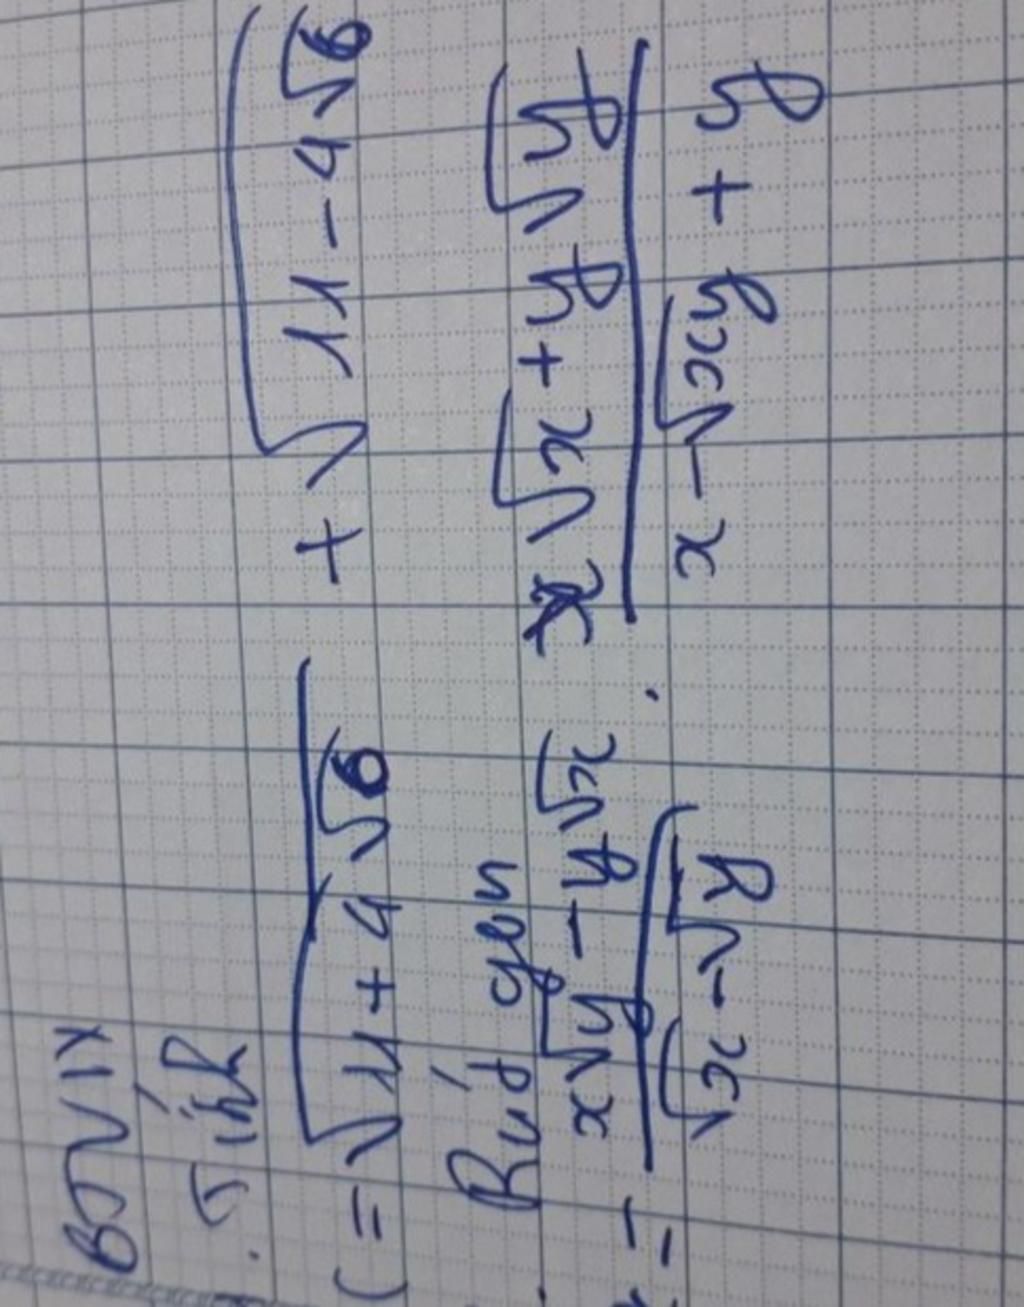 BTVN
. Tính
) = √(11 + 4√6) + √(11 - 4√6)
. Rút gọn
= (x√y - y√x)/(√x - √y) . (x√x + y√y)/(x - √xy + y)